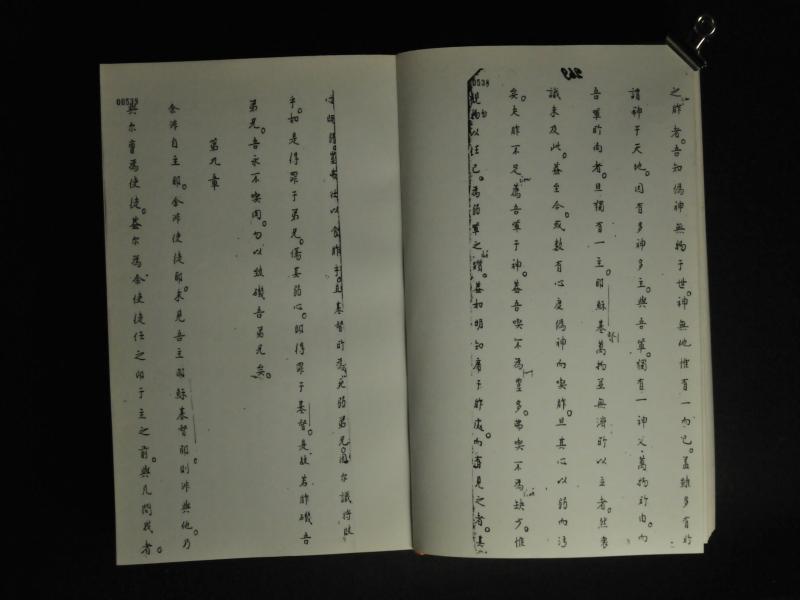 0538
之胙者。吾知偽神無物于世。神無他惟有一而已。蓋雖多有所
謂神于天地。因有多神多主。與吾輩獨有一神父。萬物所由。而
吾輩所向者。且獨有一主。耶穌基督萬物並無濟所以主者。然衆
識未及此。蓋至今。或數有心度偽神而喫胙。且其心以弱而污
矣。夫胙不足薦吾輩于神。蓋吾喫不為豐多。弗喫不為缺少。惟
物以任已。為弱輩之。蓋如明知席于胙處。而有見之者。其
00539
基督所為死弱弟兄。因尔識將敗
乎。如是得罪于弟兄。傷其弱心。即得罪于基督。是故若胙礙吾
弟兄。吾永不喫肉。勿以致礙吾弟兄矣。
第九章
余非自主耶。余非使徒耶。未見吾主耶穌基督耶。則非與他。乃
與尔曹為使徒。蓋尔為余使徒任之印于主之前。與凡問我者。